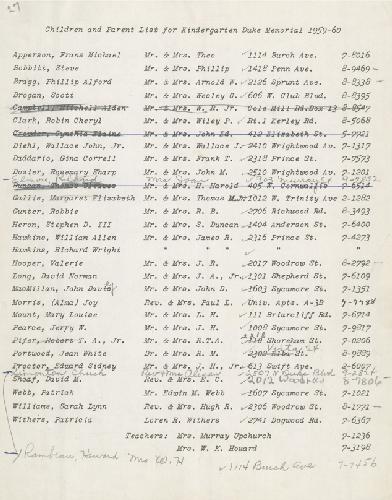 Children and Parent List for Kindergarten Duke Memorial 1959-60
Apperson, Frank Michael Mr. & Mrs. Theo 1114 Burch Ave. 7-8016
Bobbitt, Steve Mr. & Mrs. Phillip 1418 Penn Ave. 8-9469
Bragg, Phillip Alford Mr. & Mrs. Arnold W. 2126 Sprunt Ave. 8-8338
Brogan, Scott Mr. & Mrs. Hosley C. 606 W. Club Blvd. 8-8395
Campbell, Mitchell Alden Mr. & Mrs. W. R. Jr. Cole Mill Rd. Box 13
Clark, Robin Cheryl Mr. & Mrs. Wiley P. Rt.1 Kerley Rd. 8-5068
Crowder, Cynthia Elaine Mr. & Mrs. John Ed. 412 Elizabeth St. 5-7721
Diehl, Wallace John, Jr. Mr. & Mrs. Wallace J. 2410 Wrightwood Av. 7-1317
Daddario, Gina Correll Mr. & Mrs. Frank T. 2318 Prince St. 7-7573
Dosier, Rosemary Sharp Mr. & Mrs. John M. 2510 Wrightwood Av. 7-1201
Mr. & Mrs. H. Harold 405 W. Cornwallis
Gullis, Margaret Elizabeth Mr. & Mrs. Thomas M.Jr 1012 W. Trinity Ave 2-1282
Gunter, Robbie Mr. & Mrs. R. B. 2706 Richwood Rd. 8-3493
Heron, Stephen D. III Mr. & Mrs. S. Duncan 1404 Anderson St. 7-6400
Hawkins, William Allen Mr. & Mrs. James R. 2316 Prince St. 7-4273
Hawkins, Richard Wright " " " "
Hooper, Valerie Mr. & Mrs. J. R. 2017 Woodrow St. 8-2792
Long, David Norman Mr. & Mrs. J. A., Jr. 1301 Shepherd St. 7-6109
MacMillan, John David Mr. & Mrs. John D. 1603 Sycamore St. 7-1351
Morris, (Alma) Joy Rev. & Mrs. Paul L. Univ. Apts. A-3B
Mount, Mary Louise Mr. & Mrs. L. H. 111 Briarcliff Rd. 7-6714
Pearce, Jerry W. Mr. & Mrs. J. H. 1008 Sycamore St. 7-9817
Pifer, Robert T. A., Jr. Mr. & Mrs. R.T.A. Shoreham St. 7-0206
Portwood, Jean White Dr. & Mrs. R. M. 2308 8-9889
Proctor, Edward Sidney Mr. & Mrs. J. H., Jr. 613 Swift Ave. 2-6097
Shoaf, David M. Rev. & Mrs. E. C. 2012 Woodrow 8-7806
Webb, Patrick Mr. Edwin M. Webb 1607 Sycamore St. 7-1021
Williams, Sarah Lynn Rev. & Mrs. Hugh R. 2306 Woodrow St. 8-1771
Withers, Patricia Loren R. Withers 2741 Dogwood Rd. 7-6367
Teachers: Mrs. Murray Upchurch 7-1236
Mrs. W. K. Howard 7-3198
Howard Mrs W. H 1114 Burch Ave 7-7456